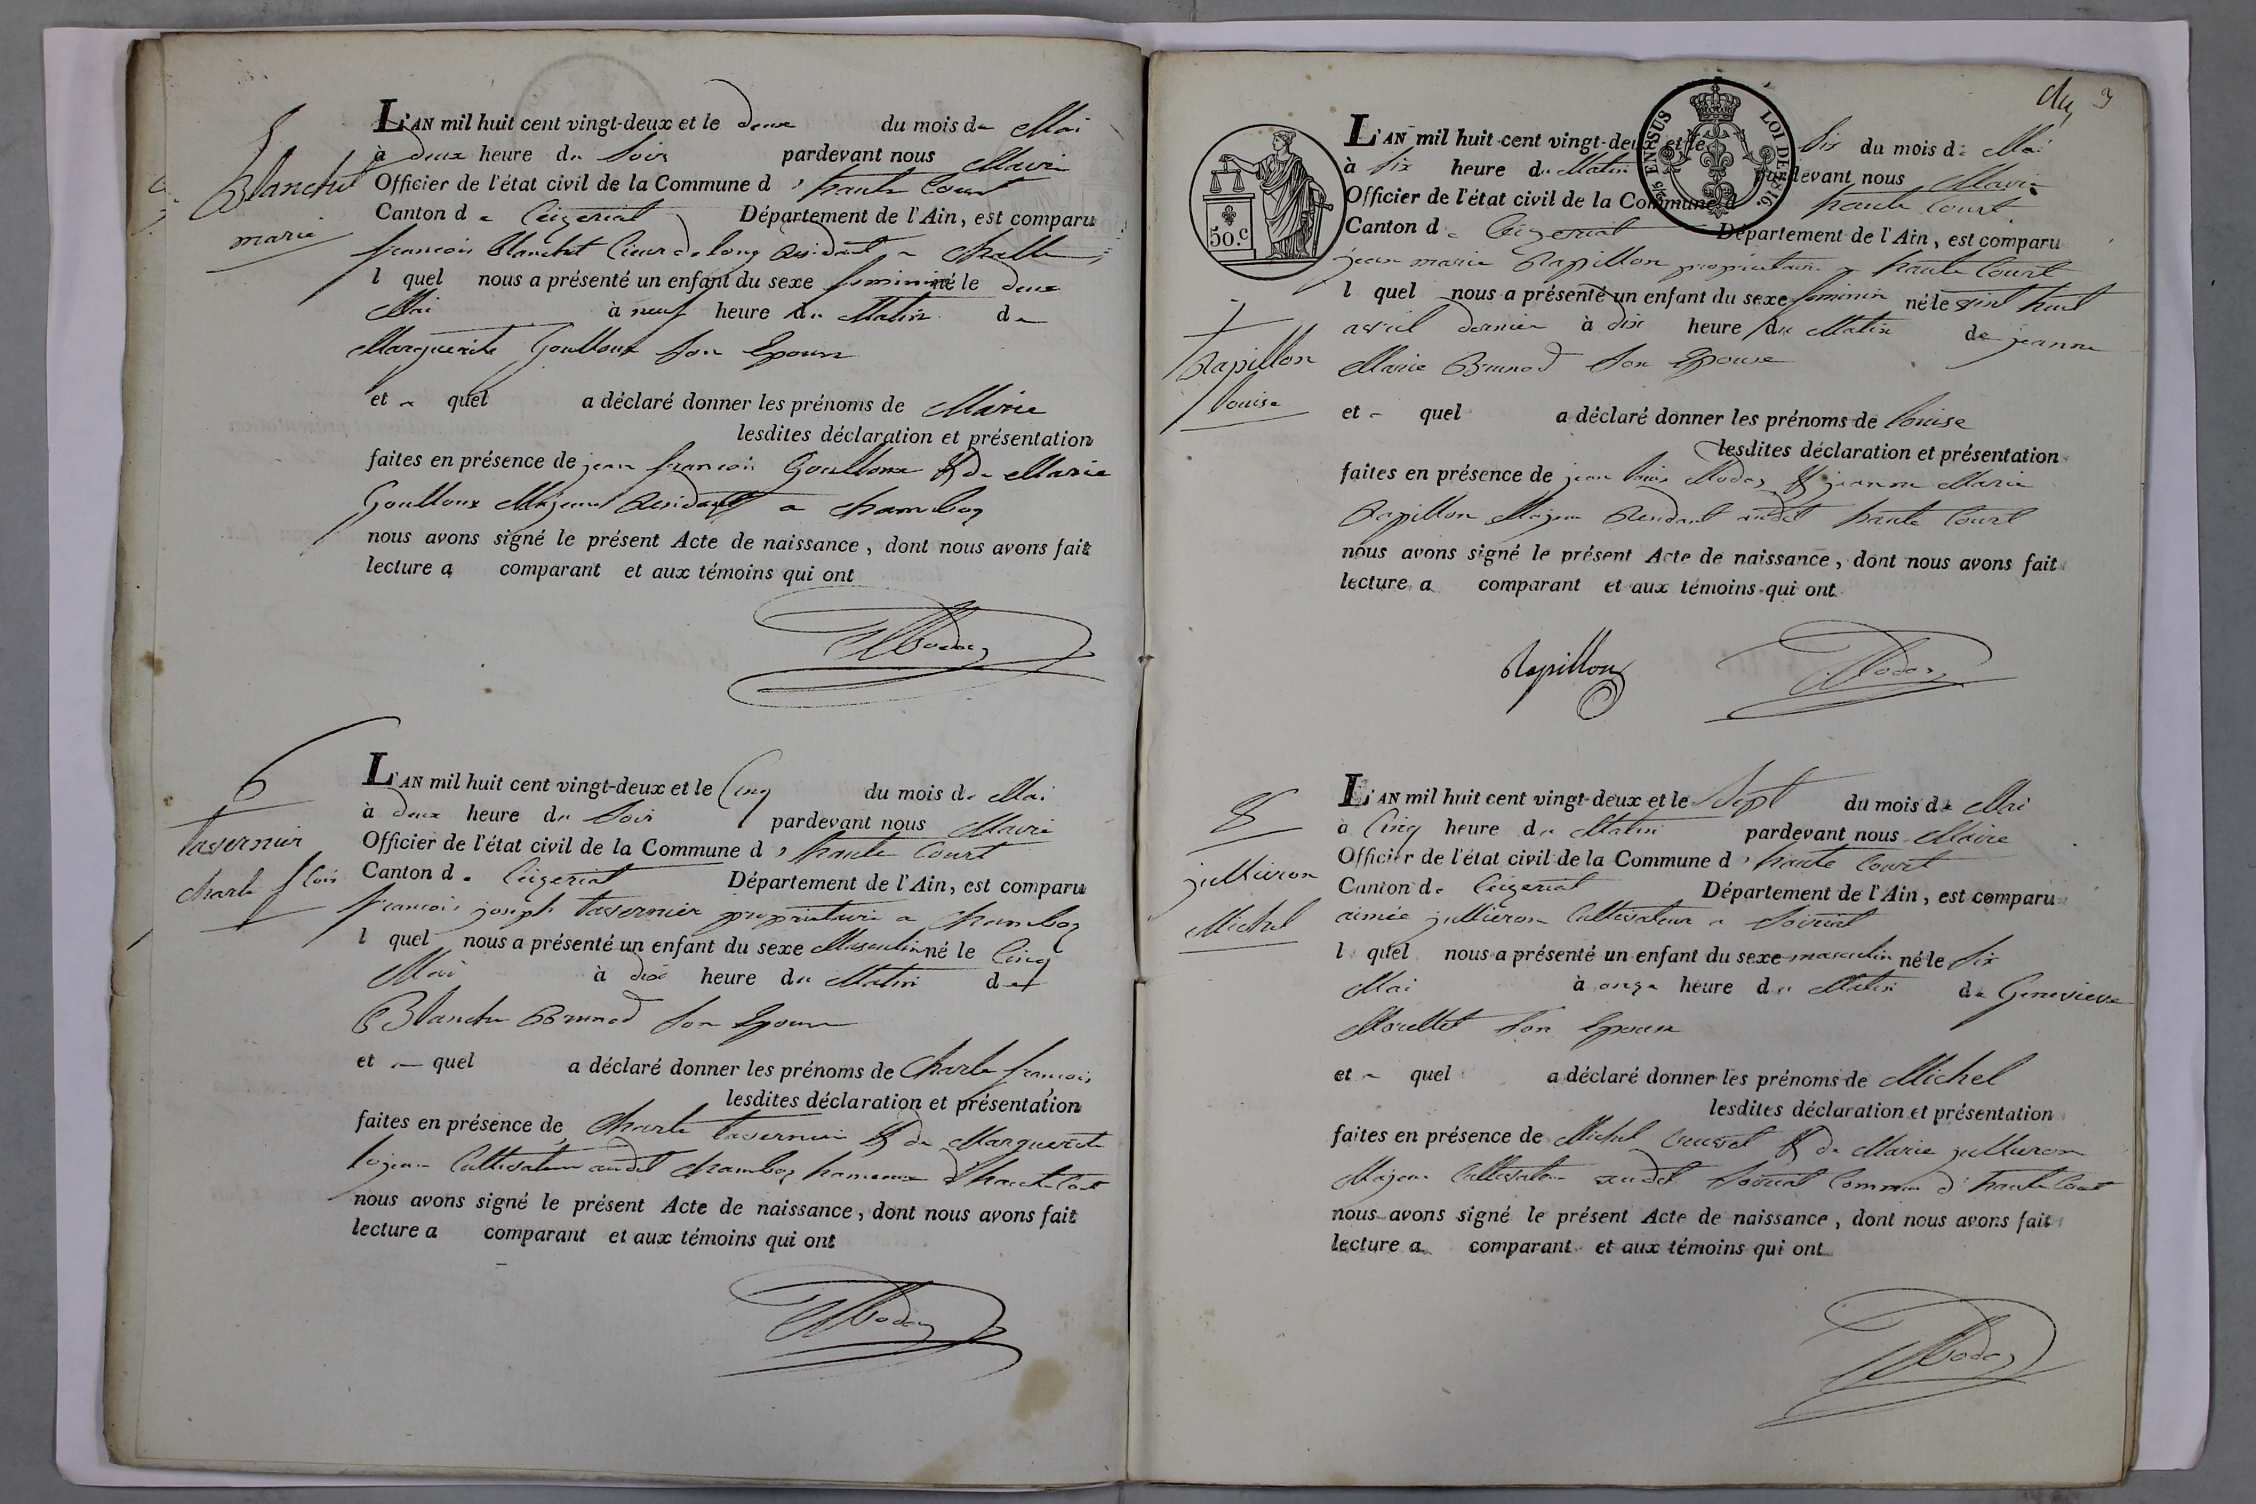 5
Blanchet
marie
L'AN mil huit cent vingt-deux et le deux du mois de Mai
à deux heure du Soir pardevant nous Maire
Officier de l'état civil de la Commune d' haute Court
Canton de Ceizeriat Département de l'Ain, est comparu
francois Blanchet résidant a Challe
l quel nous a présenté un enfant du sexe feminin né le deux
Mai à neuf heure du Matin de
Marguerite Goulloux Son Epouse
et quel a déclaré donner les prénoms de Marie
lesdites déclaration et présentation
faites en présence de jean francois Goulloux & de Marie
Goulloux Majeur Residant a chamboz
nous avons signé le présent Acte de naissance, dont nous avons fait
lecture a comparant et aux témoins qui ont
6
tavernier
charle f cois
L'AN mil huit cent vingt-deux et le Cinq du mois de Mai
à deux heure du Soir pardevant nous Maire
Officier de l'état civil de la Commune d' haute Court
Canton de Ceizeriat Département de l'Ain, est comparu
francois joseph tavernier propriétaire a chamboz
l quel nous a présenté un enfant du sexe Masculin né le Cinq
Mai à dix heure du Matin de
Blanche Brunod Son Epouse
et quel a déclaré donner les prénoms de Charle francois
lesdites déclaration et présentation
faites en présence de Charle tavernier & de Marguerite
Cultivateur audit chamboz hameau d'haute Court
nous avons signé le présent Acte de naissance, dont nous avons fait
lecture a comparant et aux témoins qui ont
3
50.c
LOI DE 1816.
L'AN mil huit cent vingt-deux et le Six du mois de Mai
à Six heure du Matin pardevant nous Maire
Officier de l'état civil de la Commune d haute Court
Canton de Ceizeriat Département de l'Ain, est comparu
jean marie Rapillon propriétaire a haute Court
l quel nous a présenté un enfant du sexe feminin né le vint huit
avril dernier à dix heure du Matin de jeanne
Marie Brunod Son Epouse
7
Rapillon
louise
et quel a déclaré donner les prénoms de louise
lesdites déclaration et présentation
faites en présence de jean louis Modas & jeanne Marie
Rapillon Majeur Residant audit haute Court
nous avons signé le présent Acte de naissance, dont nous avons fait
lecture a comparant et aux témoins qui ont
Rapillon
8
jullieron
Michel
L'AN mil huit cent vingt-deux et le Sept du mois de Mai
à Cinq heure du Matin pardevant nous Maire
Officier de l'état civil de la Commune d' haute Court
Canton de Ceizeriat Département de l'Ain, est comparu
aimée jullieron Cultivateur a
l quel nous a présenté un enfant du sexe masculin né le Six
Mai à onze heure du Matin de Genevieve
Morellet Son Epouse
et quel a déclaré donner les prénoms de Michel
lesdites déclaration et présentation
faites en présence de Michel & de Marie jullieron
Majeur Cultivateur audit Commune d'haute Court
nous avons signé le présent Acte de naissance, dont nous avons fait
lecture a comparant et aux témoins qui ont